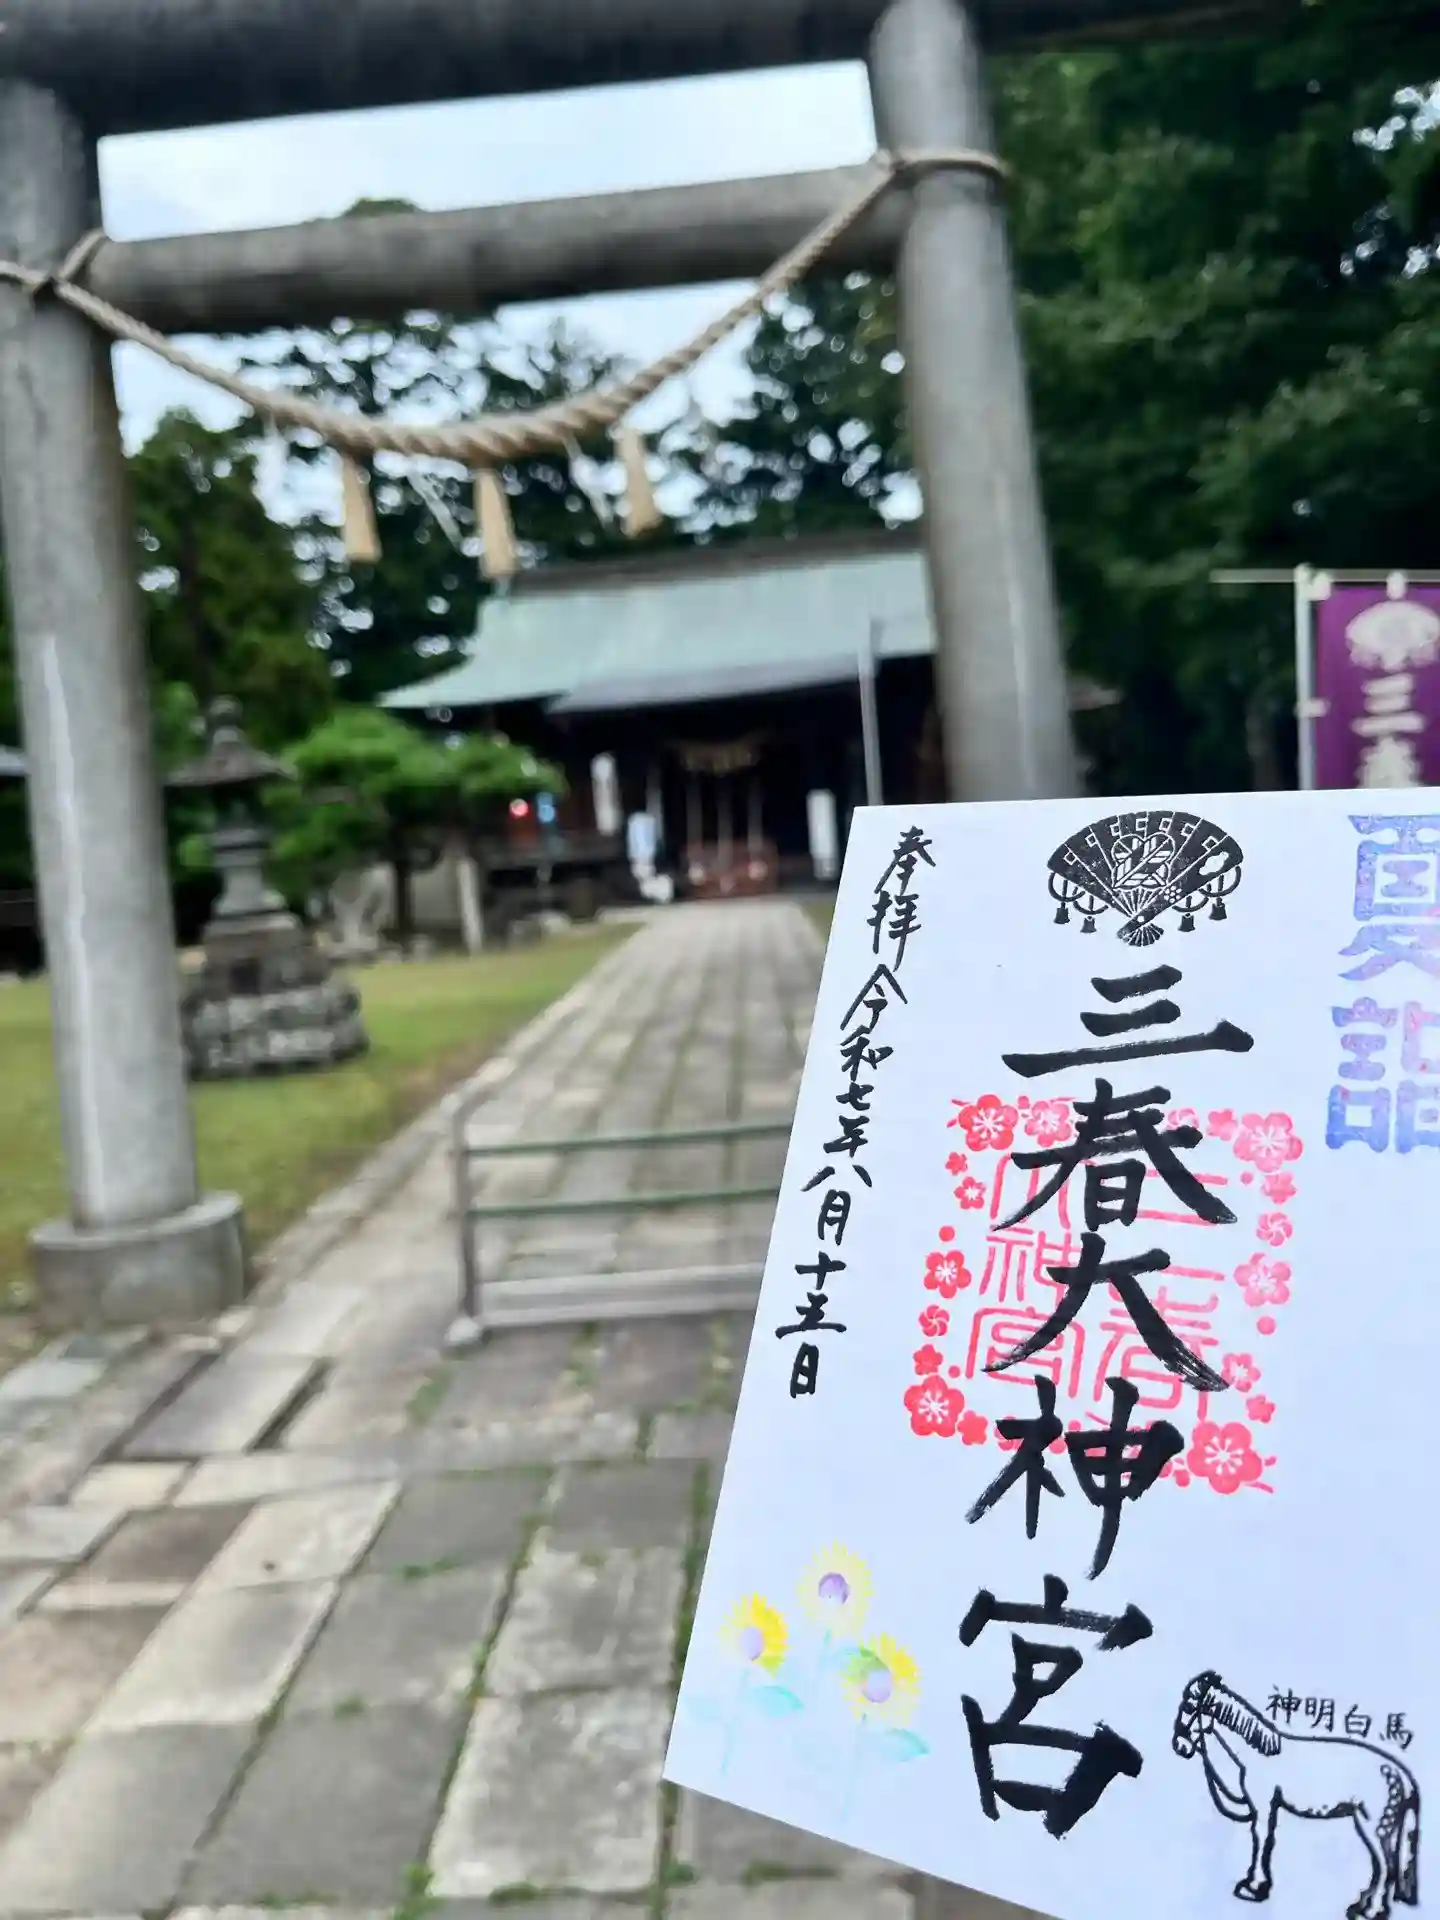 夏詣
三春大神宮
奉拝 令和七年八月十五日
三春
大神宮
神明白馬
三春